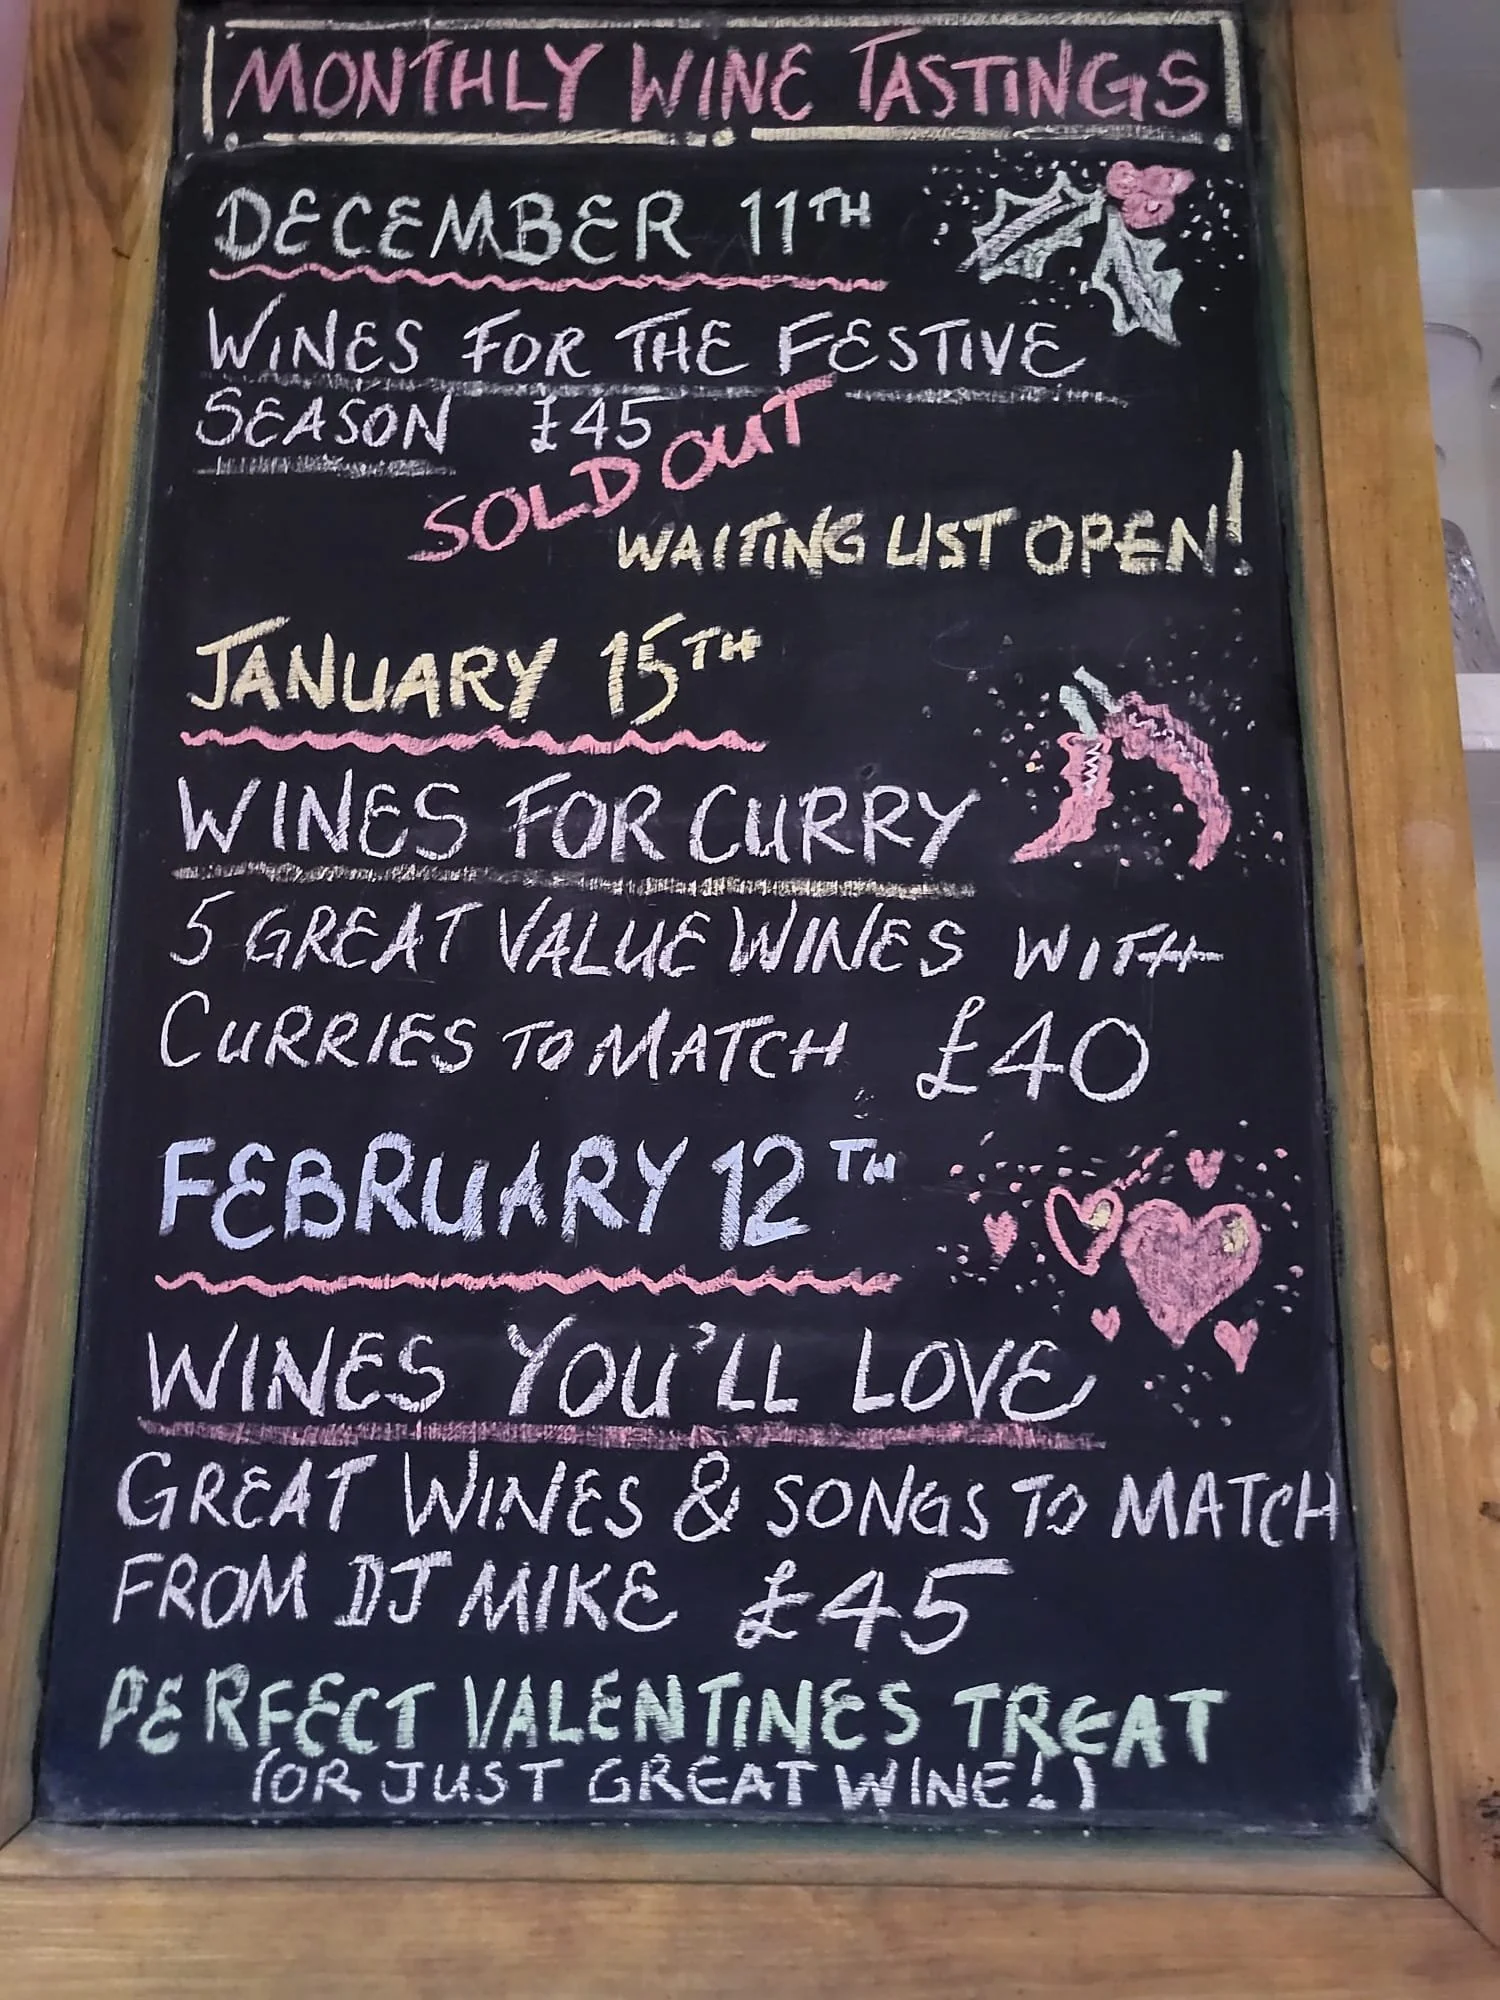 MONTHLY WINE TASTINGS
DECEMBER 11TH
WINES FOR THE FESTIVE
SEASON £45
SOLD OUT
WAITING LIST OPEN!
JANUARY 15TH
WINES FOR CURRY
5 GREAT VALUE WINES WITH
CURRIES TO MATCH £40
FEBRUARY 12TH
WINES YOU'LL LOVE
GREAT WINES & SONGS TO MATCH
FROM DJ MIKE £45
PERFECT VALENTINES TREAT
(OR JUST GREAT WINE!)